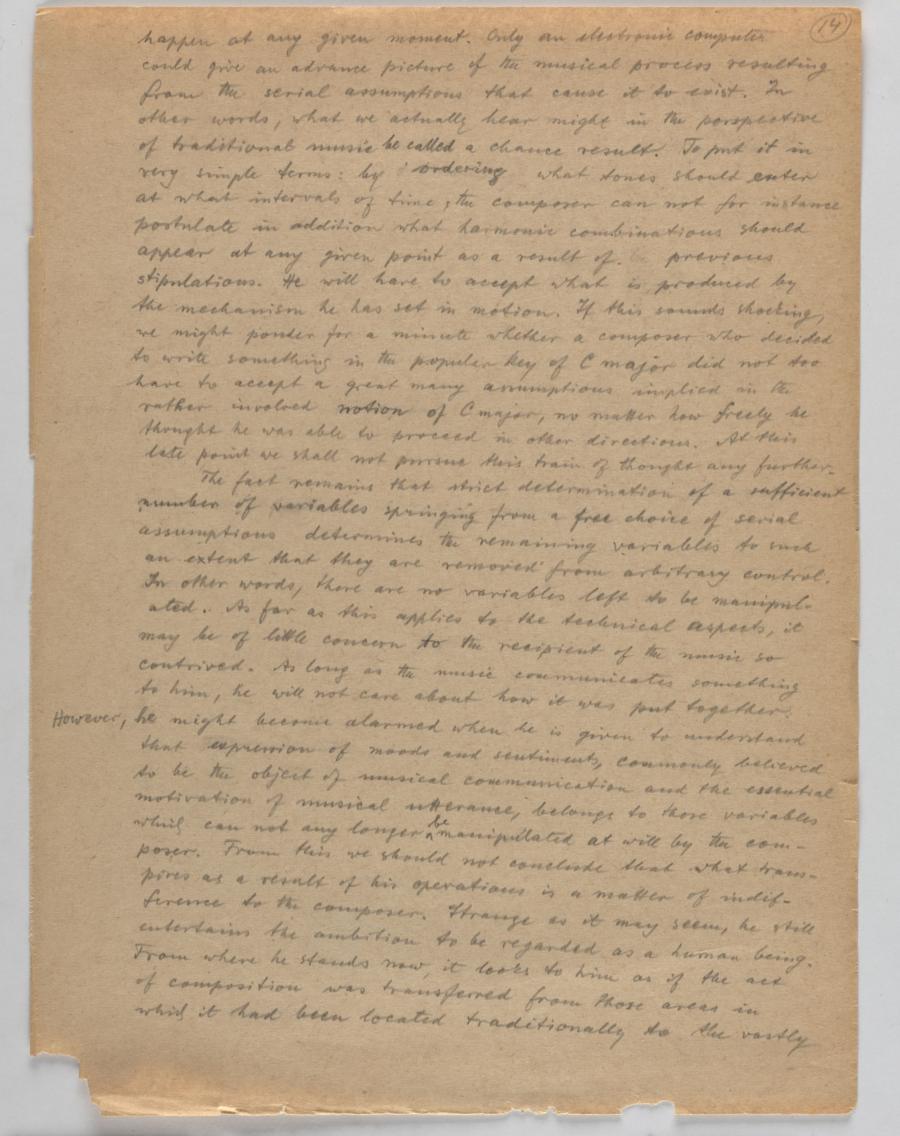 14
happen at any given moment. Only an electronic computer
could give an advance picture of the musical process resulting
from the serial assumptions that cause it to exist. In
other words, what we actually hear might in the perspective
of traditional music be called a chance result. To put it in
very simple terms: by ordering what tones should enter
at what intervals of time, the composer can not for instance
postulate in addition what harmonic combinations should
appear at any given point as a result of previous
stipulations. He will have to accept what is produced by
the mechanism he has set in motion. If this sounds shocking,
we might ponder for a minute whether a composer who decided
to write something in the popular key of C major did not too
have to accept a great many assumptions implied in the
rather involved notion of C major, no matter how freely he
thought he was able to proceed in other directions. At this
late point we shall not pursue this train of thought any further.
The fact remains that strict determination of a sufficient
number of variables springing from a free choice of serial
assumptions determines the remaining variables to such
an extent that they are removed from arbitrary control.
In other words, there are no variables left to be manipul-
ated. As far as this applies to the technical aspects, it
may be of little concern to the recipient of the music so
contrived. As long as the music communicates something
to him, he will not care about how it was put together.
However, he might become alarmed when he is given to understand
that expression of moods and sentiments, commonly believed
to be the object of musical communication and the essential
motivation of musical utterance, belongs to those variables
which can not any longer be manipulated at will by the com-
poser. From this we should not conclude that what trans-
pires as a result of his operations is a matter of indif-
ference to the composer. Strange as it may seem, he still
entertains the ambition to be regarded as a human being.
From where he stands now, it looks to him as if the act
of composition was transferred from those areas in
which it had been located traditionally to the vastly